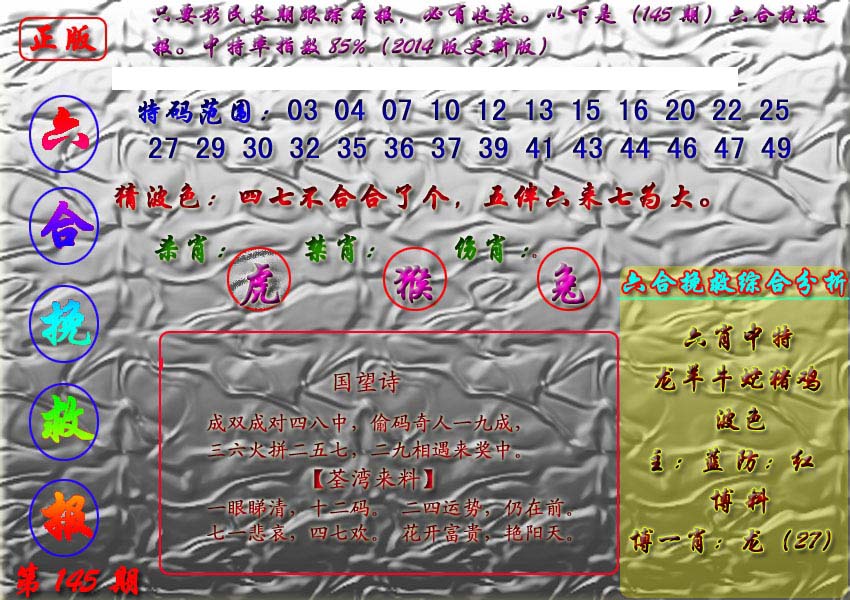 正版
只要彩民长期跟踪本报，必有收获。以下是（145 期）六合挽救
报。中特率指数 85%（2014 版更新版）
六合挽救报
第 145 期
特码范围：03 04 07 10 12 13 15 16 20 22 25
27 29 30 32 35 36 37 39 41 43 44 46 47 49
猜波色：四七不合合了个，五伴六来七为大。
杀肖：虎 禁肖：猴 伤肖：兔
国望诗
成双成对四八中，偷码奇人一九成，
三六火拼二五七，二九相遇来奖中。
【荃湾来料】
一眼睇清，十二码。 二四运势，仍在前。
七一悲哀，四七欢。 花开富贵，艳阳天。
六合挽救综合分析
六肖中特
龙羊牛蛇猪鸡
波色
主：蓝防：红
博料
博一肖：龙（27）